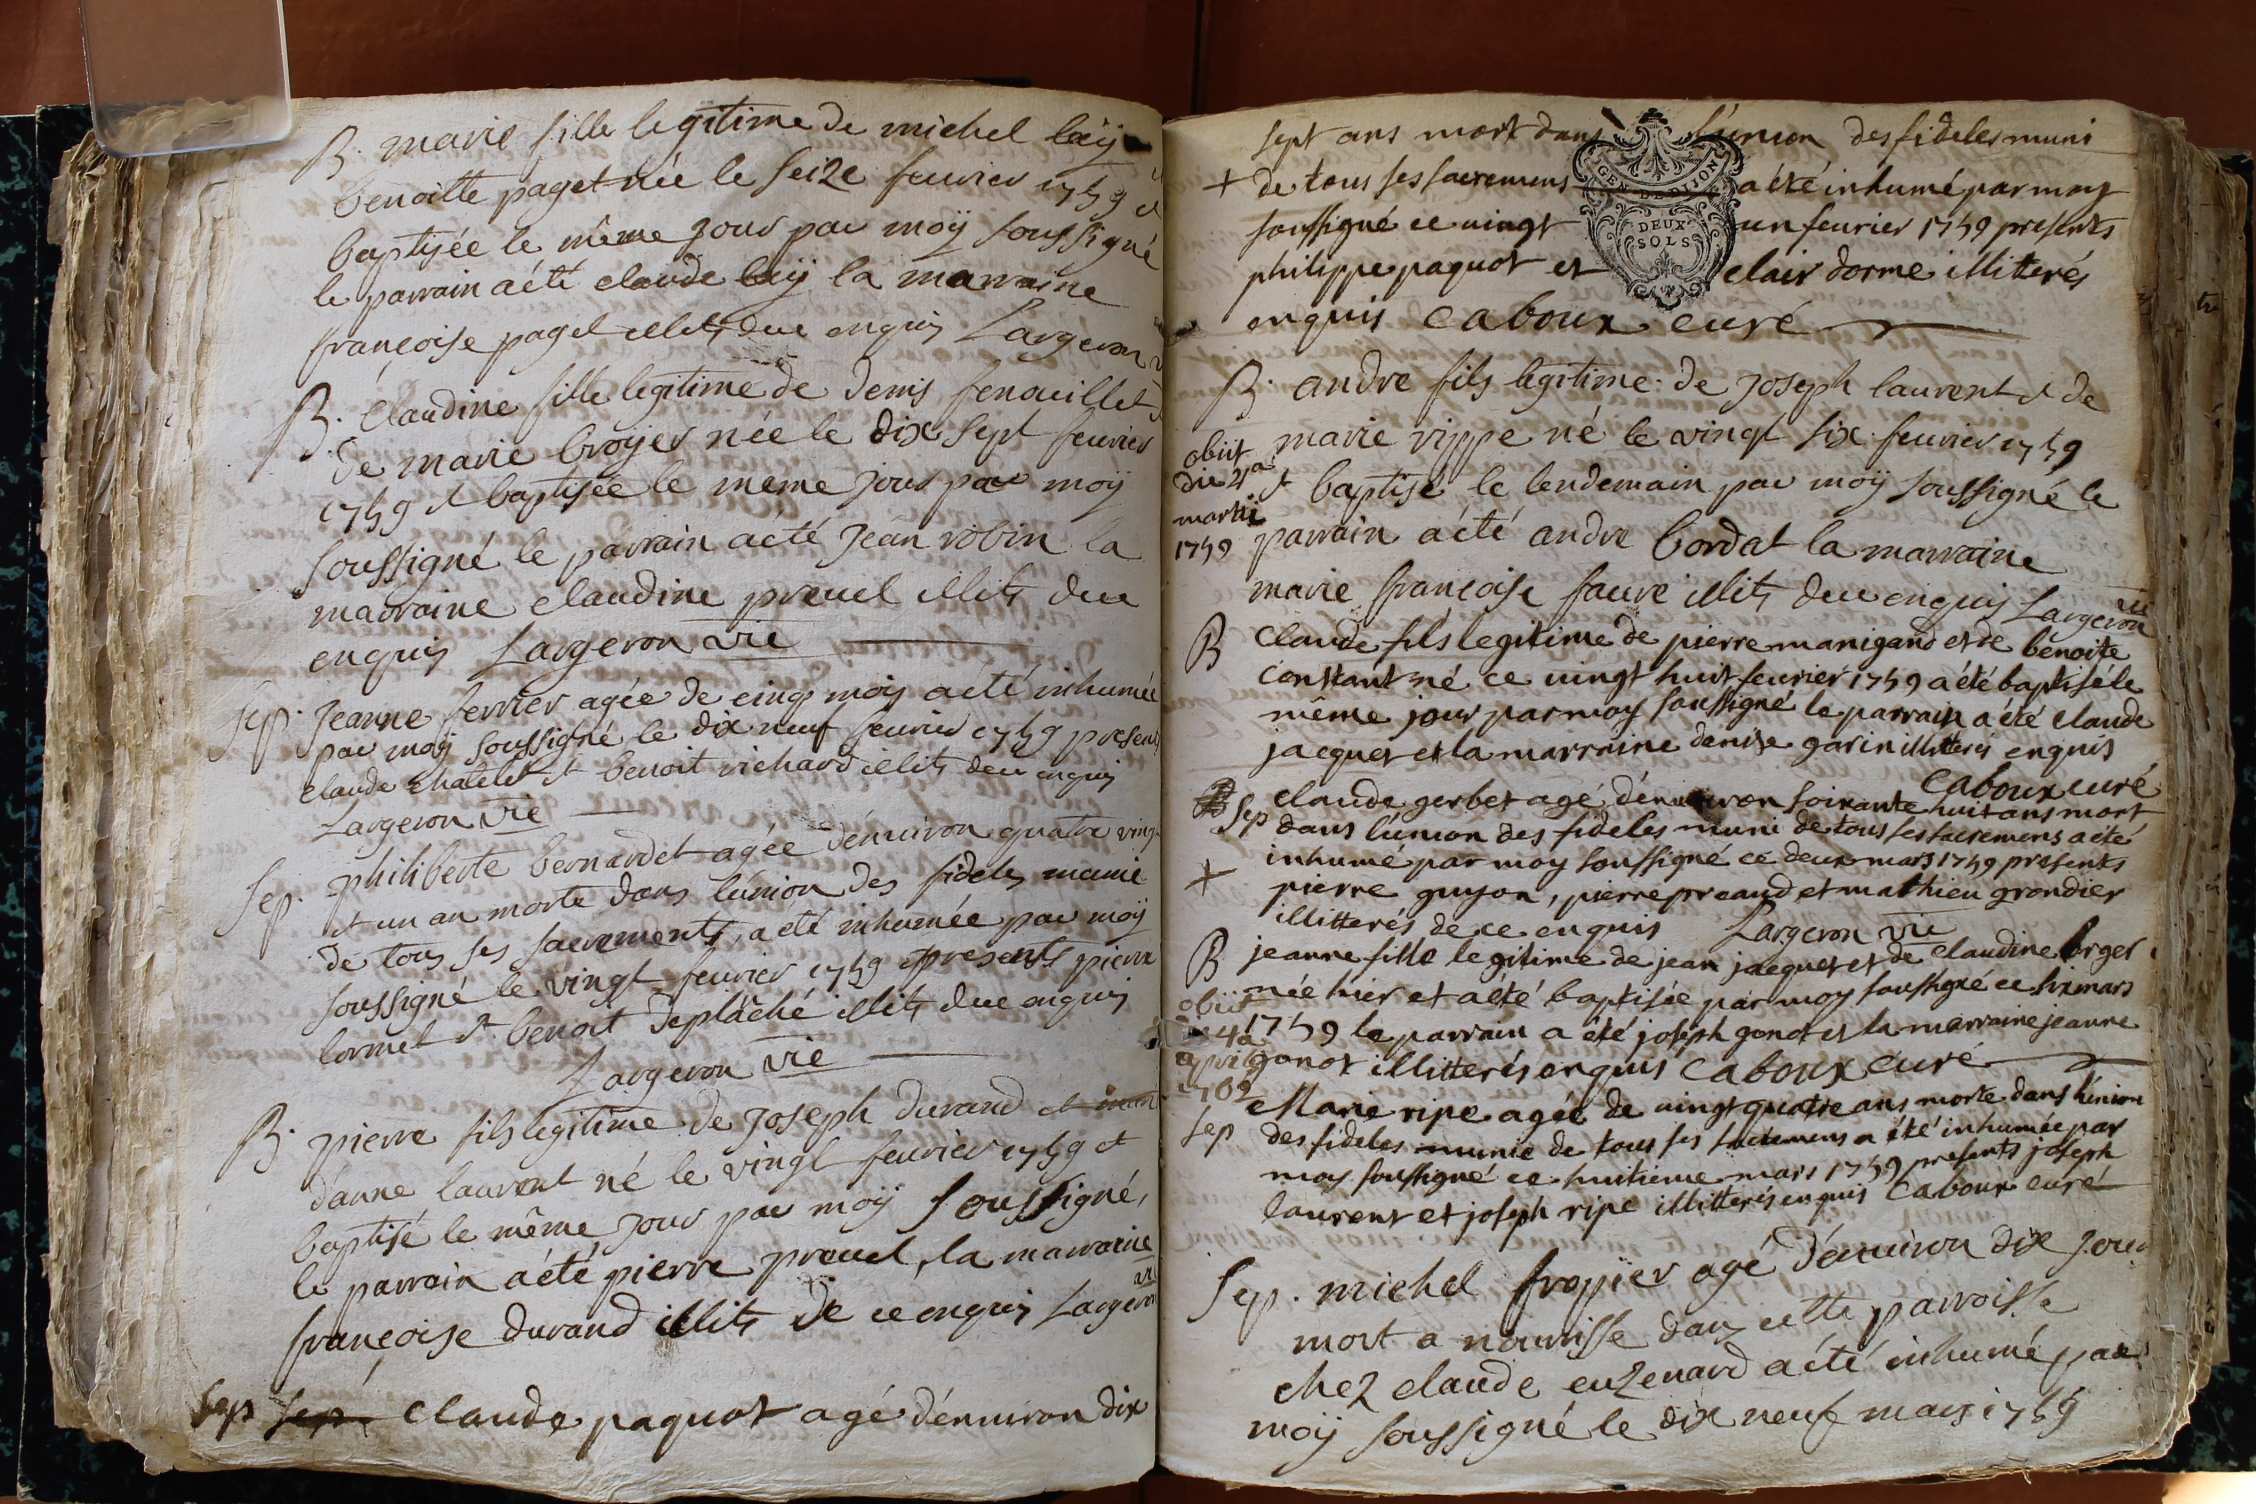 B. marie fille legitime de michel laÿ
benoitte paget née le seize feurier 1759 et
baptisée le même jour par moÿ soussigné
le parrain a été claude laÿ la marraine
françoise paget illits due enquis Largeron
B. Claudine fille legitime de denis fenouillet
de marie broyer née le dix sept feurier
1759 et baptisée le même jour par moÿ
soussigné le parrain a été jean robin la
marraine claudine preuel illits due
enquis Largeron vic
sep. jeanne ferrier agée de cinq mois a été inhumée
par moÿ soussigné le dix neuf feurier 1759 presents
claude chatelet et benoit richard illits due enquis
Largeron vic
sep. philiberte bernardet agée dénuiron quatre vingt
et un an morte dans lúnion des fideles munie
de tous ses sacrements, a été inhumée par moÿ
soussigné le vingt feurier 1759 presents pierre
lormet et benoit deplâché illits due enquis
Largeron vic
B. pierre fils legitime de joseph durand et
d'anne laurent né le vingt feurier 1759 et
baptisé le même jour par moÿ soussigné,
le parrain a été pierre preuel, la marraine
françoise durand illits de ce enquis Largeron vic
sep sep. claude paquot agé dénuiron dix
sept ans mort dans l'union des fideles muni
+ de tous ses sacremens a été inhumé par moy
GEN. DE DIJON
soussigné ce uingt un feurier 1759 presents
DEUX
SOLS
philippe paquot et clair dorme illitterés
enquis Caboux curé
B. andre fils legitime de joseph laurent et de
marie rippe né le vingt six feurier 1759
obiit
die 2a
martii
1759
et baptisé le lendemain par moÿ soussigné le
parrain a été andre bordat la marraine
marie françoise faure illits due enquis Largeron vic
B Claude fils legitime de pierre manigand et de benoite
constant né ce uingt huit feurier 1759 a été baptisé le
même jour par moy soussigné le parrain a été claude
jacquet et la marraine denise garin illitterés enquis
Caboux curé
Sep claude gerbet agé dénuiron soixante huit ans mort
dans l'union des fideles muni de tous ses sacremens a été
inhumé par moy soussigné ce deux mars 1759 presents
+ pierre guyon, pierre preaud et mathieu grondier
illitterés de ce enquis Largeron vic
B jeanne fille legitime de jean jacquet et de claudine
née hier et a été baptisée par moy soussigné ce six mars
obiit
4a
aprilis
1762
1759 le parrain a été joseph gonot et la marraine jeanne
gonot illitterés enquis Caboux curé
sep Marie ripe agée de uingt quatre ans morte dans l'union
des fideles munie de tous ses sacremens a été inhumée par
moy soussigné ce huitieme mars 1759 presents joseph
laurent et joseph ripe illitterés enquis Caboux curé
sep. michel agé dénuiron dix jours
mort a nourrisse dans cette parroisse
chez claude euzenard a été inhumé par
moÿ soussigné le dix neuf mars 1759